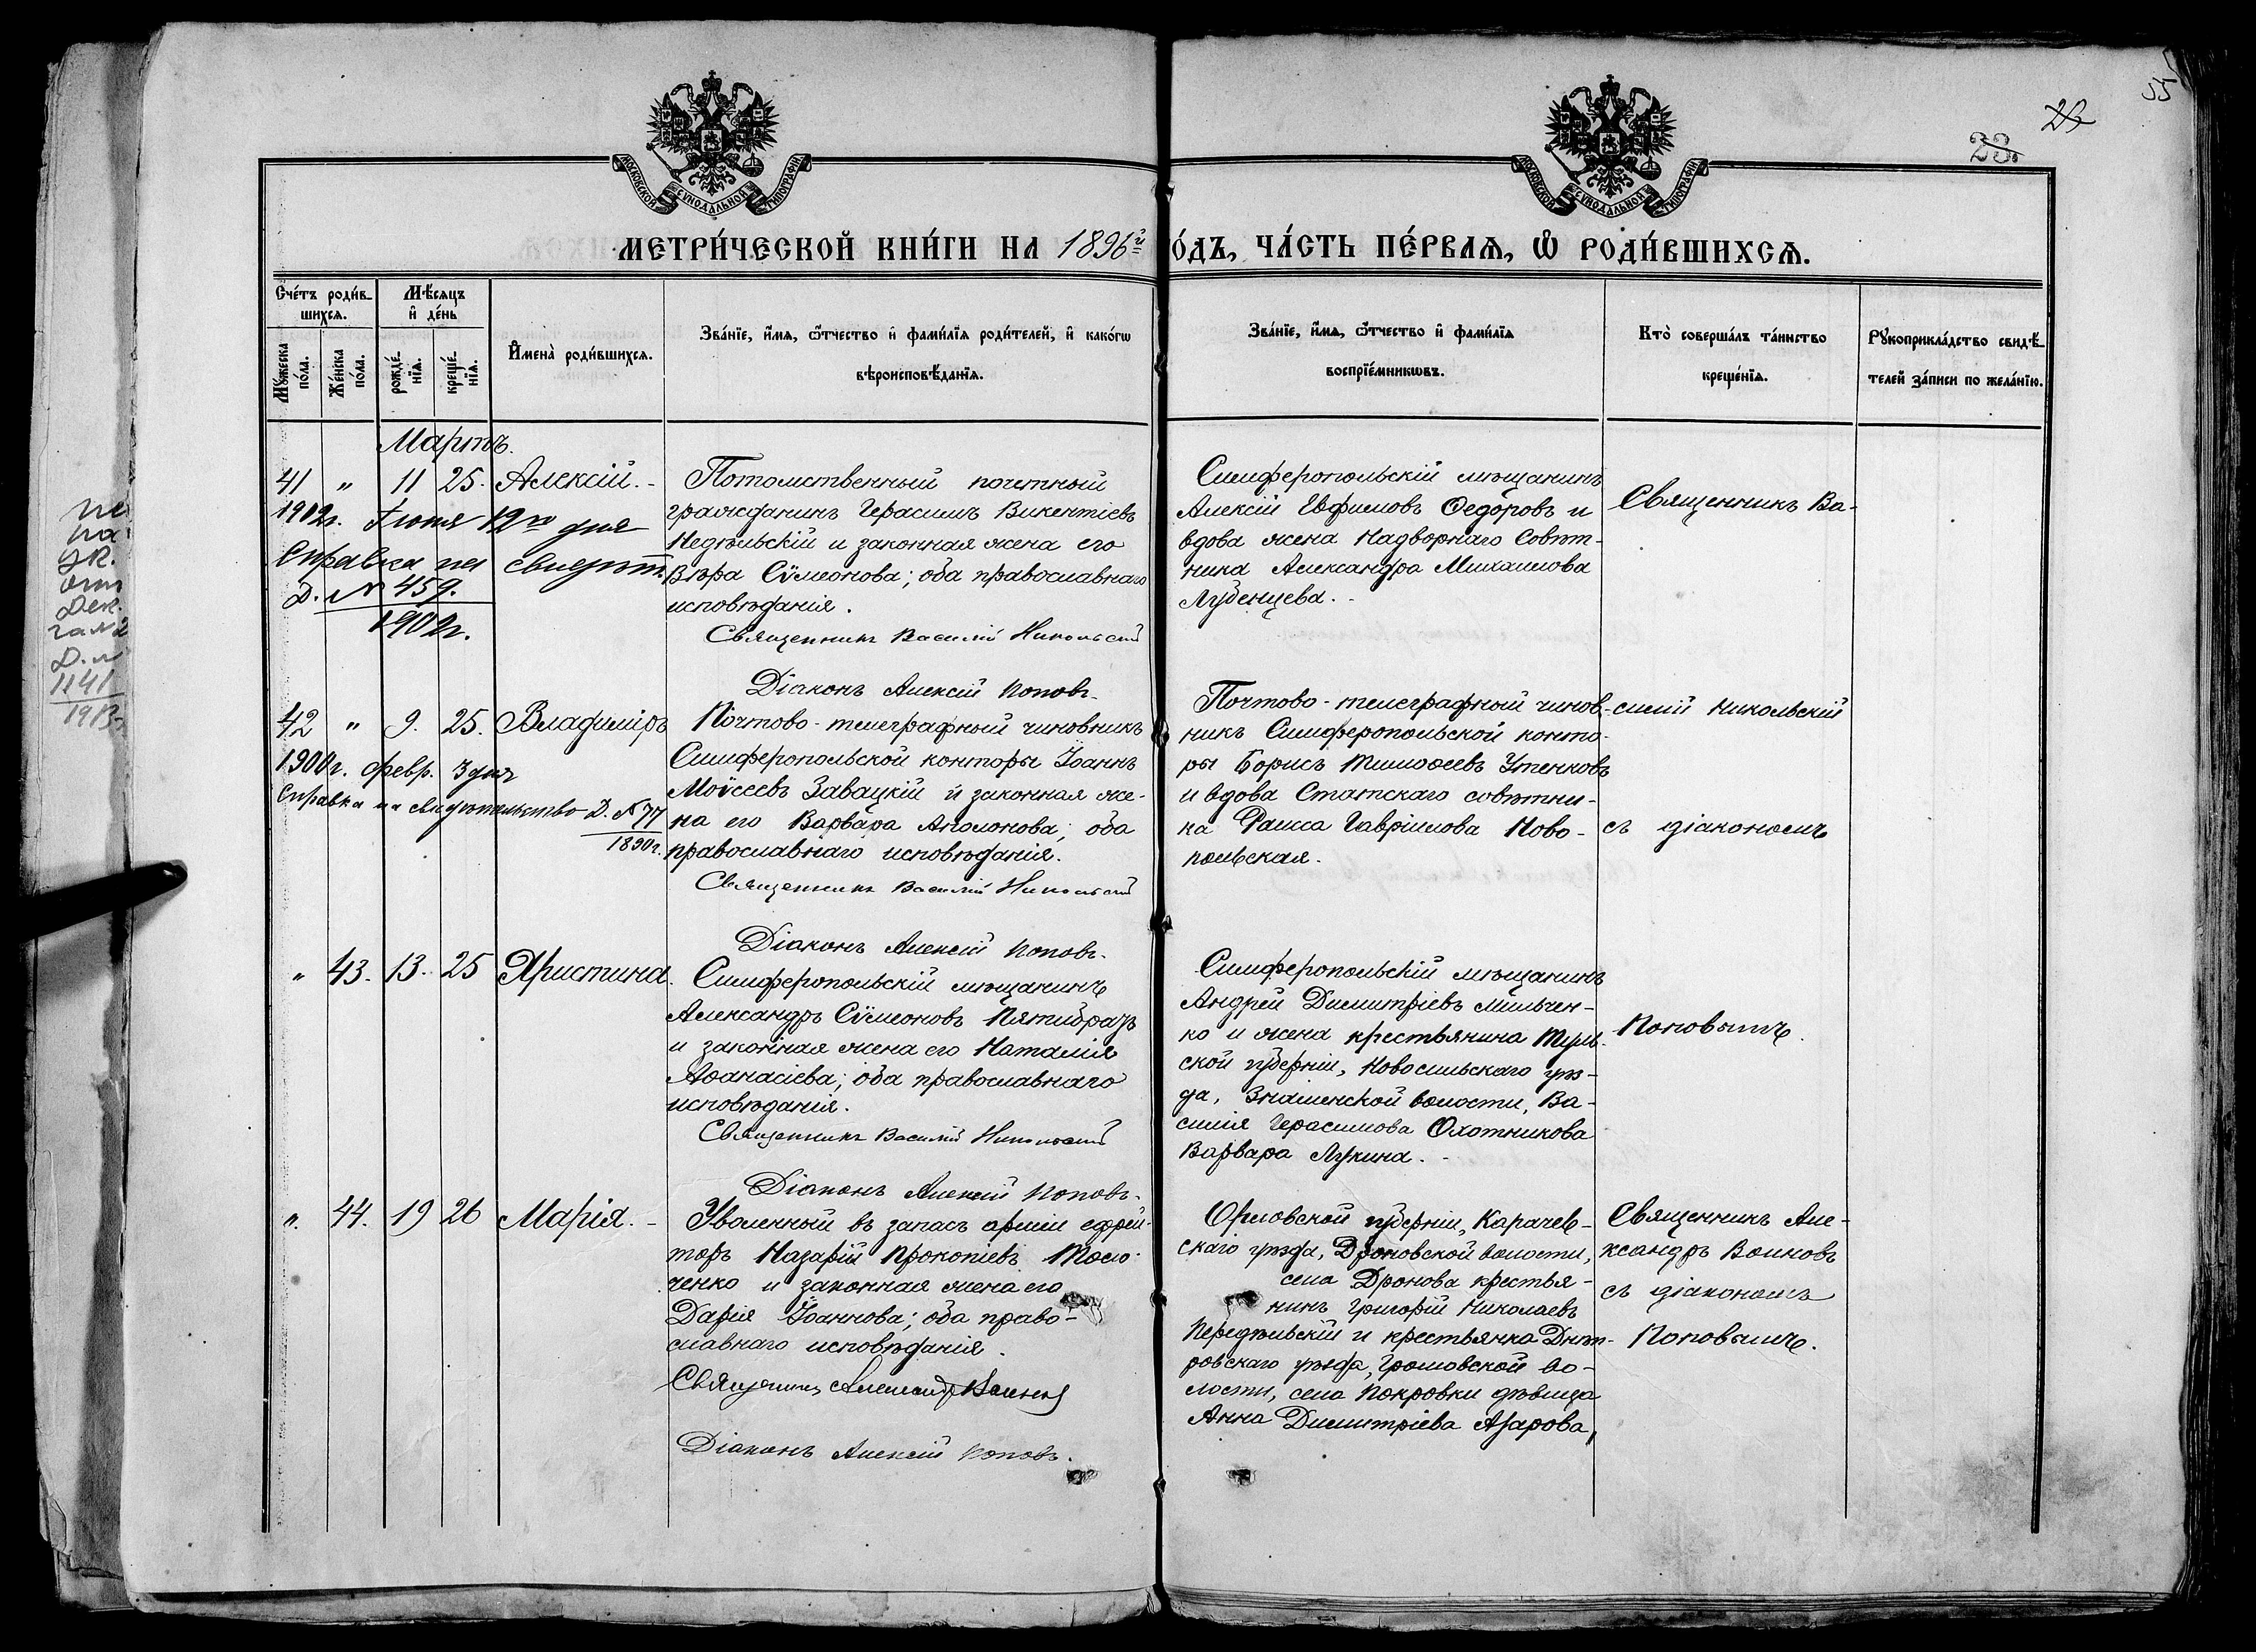 55
23
23.
МОСКОВСКОЙ СѴНОДАЛЬНОЙ ТИПОГРАФІИ
МОСКОВСКОЙ СѴНОДАЛЬНОЙ ТИПОГРАФІИ
МЕТРИ́ЧЕСКОЙ КНИ́ГИ НА 1896й
О́ДЪ, ЧА́СТЬ ПЕ́РВАѦ, Ѿ РОДИ́ВШИХСѦ.
Сче́тъ роди́вшихсѧ.
Мꙋжеска по́ла.
Же́нска по́ла.
Мѣ́сѧцъ и҆ де́нь
рожде́нїѧ.
креще́нїѧ.
И҆мена̀ роди́вшихсѧ.
Зва́нїе, и҆́мѧ, ѻ҆́тчество и҆ фами́лїѧ роди́телей, и҆ како́гѡ
вѣроисповѣ́данїѧ.
Зва́нїе, и҆́мѧ, ѻ҆́тчество и҆ фами́лїѧ
воспрїе́мникѡвъ.
Кто̀ соверша́лъ та́инство
креще́нїѧ.
Рꙋкоприкла́дство свидѣ́-
телей за́писи по жела́нїю.
Мартъ.
41 " 11 25. Алексій. -
1902г. Іюня 12го дня
Справка на свидѣт.
Д. № 459.
1902г.
Потомственный почетный
гражданинъ Герасимъ Викентіевъ
Недѣльскій и законная жена его
Вѣра Сѵмеонова; оба православнаго
исповѣданія.
Священникъ Василій Никольскій
Діаконъ Алексій Поповъ.
Симферопольскій мѣщанинъ
Алексій Евфимовъ Ѳедоровъ и
вдова жена Надворнаго Совѣт-
ника Александра Михаилова
Лубенцева. -
Священникъ Ва-
42 " 9. 25. Владиміръ
1900г. февр. 3 дня
Справка на свидѣтельство Д. № 77
1890г.
Почтово-телеграфный чиновникъ
Симферопольской конторы Іоаннъ
Моѵсеевъ Завацкій и законная же-
на его Варвара Аполонова; оба
православнаго исповѣданія.
Священникъ Василій Никольскій
Діаконъ Алексій Поповъ.
Почтово-телеграфный чинов-
никъ Симферопольской конто-
ры Борисъ Тимоѳеевъ Утенковъ
и вдова Статскаго совѣтни-
ка Раиса Гавріилова Ново-
польская.
силій Никольскій
съ діакономъ
" 43. 13. 25 Христина.
Симферопольскій мѣщанинъ
Александръ Сѵмеоновъ Пятибратъ
и законная жена его Наталія
Аѳанасіева; оба православнаго
исповѣданія.
Священникъ Василій Никольскій
Діаконъ Алексій Поповъ.
Симферопольскій мѣщанинъ
Андрей Димитріевъ Мильчен-
ко и жена крестьянина Туль-
ской губерніи, Новосильскаго уѣз-
да, Знаменской волости, Ва-
силія Герасимова Охотникова
Варвара Лукина. -
Поповымъ.
". 44. 19 26 Марія. -
Уволенный въ запасъ арміи ефрей-
торъ Назарій Прокопіевъ Толо-
ченко и законная жена его
Дарія Іоаннова; оба право-
славнаго исповѣданія.
Священникъ Александръ Воиновъ
Діаконъ Алексій Поповъ.
Орловской губерніи, Карачев-
скаго уѣзда, Дроновской волости,
села Дронова крестья-
нинъ Григорій Николаевъ
Передѣльскій и крестьянка Днѣп-
ровскаго уѣзда, Громовской во-
лости, села Покровки дѣвица
Анна Димитріева Азарова,
Священникъ Але-
ксандръ Воиновъ
съ діакономъ
Поповымъ.
Д. №
1141
1913